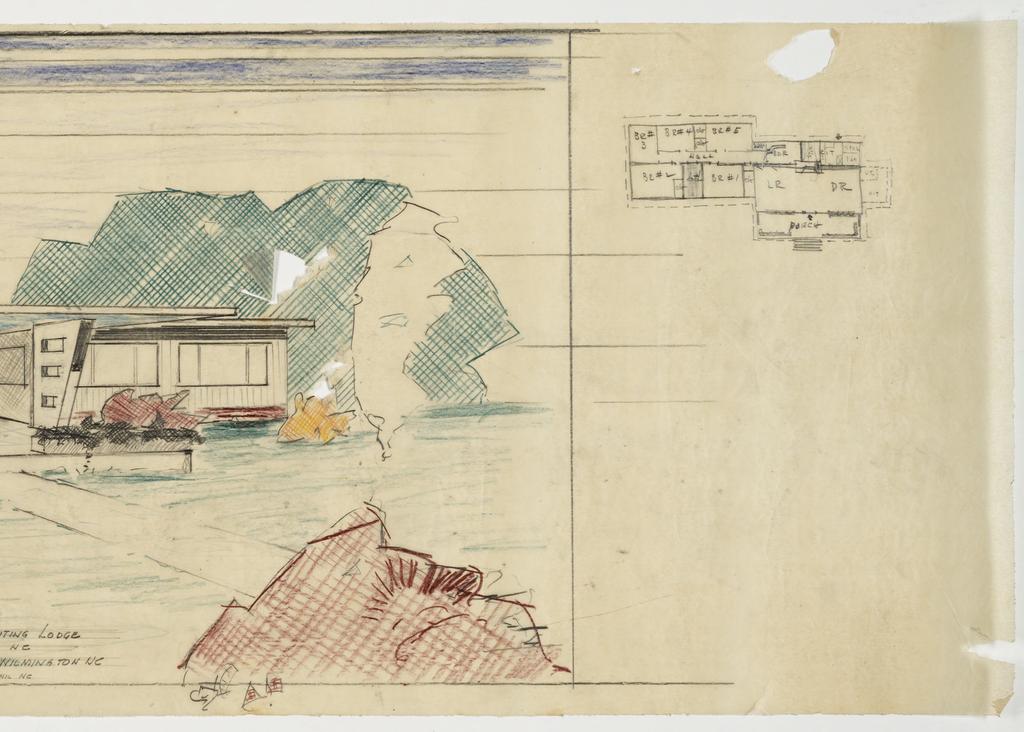 BR# 3 BR#4 CLO BR#5
HALL
BR#2 BR#1
LR DR
PORCH
TING LODGE
NC
WILMINGTON NC
NC